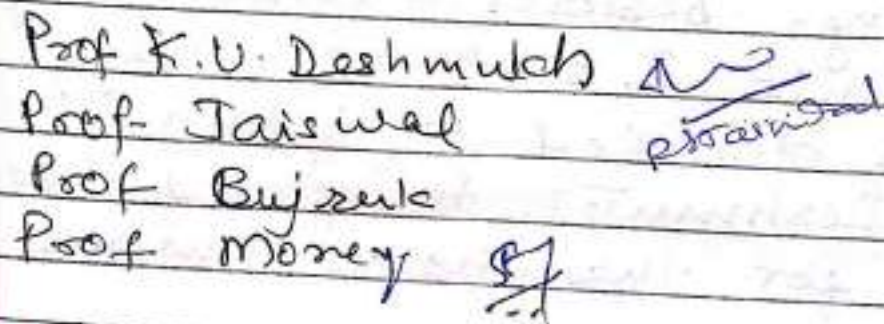 Prof K.U. Deshmukh
Prof Jaiswal
Prof Bujruk
Prof Money